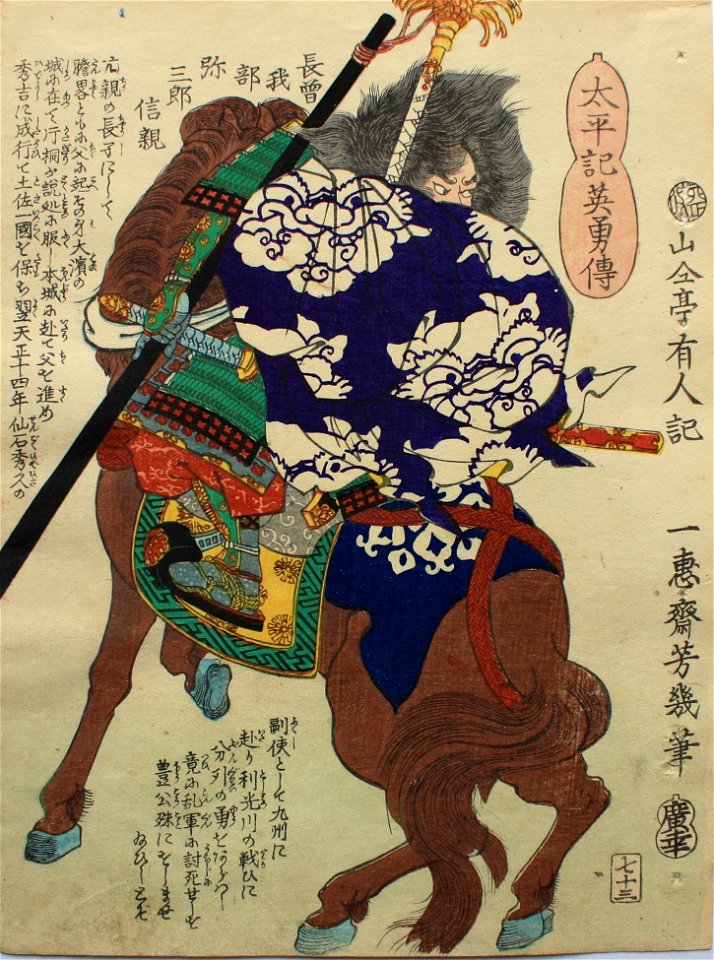 太平記英勇傳
山々亭有人記
一惠齋芳幾筆
廣幸
七十三
長曾
我
部
弥
三郎
信親
元親の長子にして
膽畧とも尓父尓起その身大濱の
城尓在て片桐が説処尓服し本城尓赴て父を進め
秀吉に成行て土佐一國を保ち翌天正十四年仙石秀久の
副使として九州に
赴り利光川の戦ひに
竟尓乱軍尓討死せしを
豊公殊にをしませ